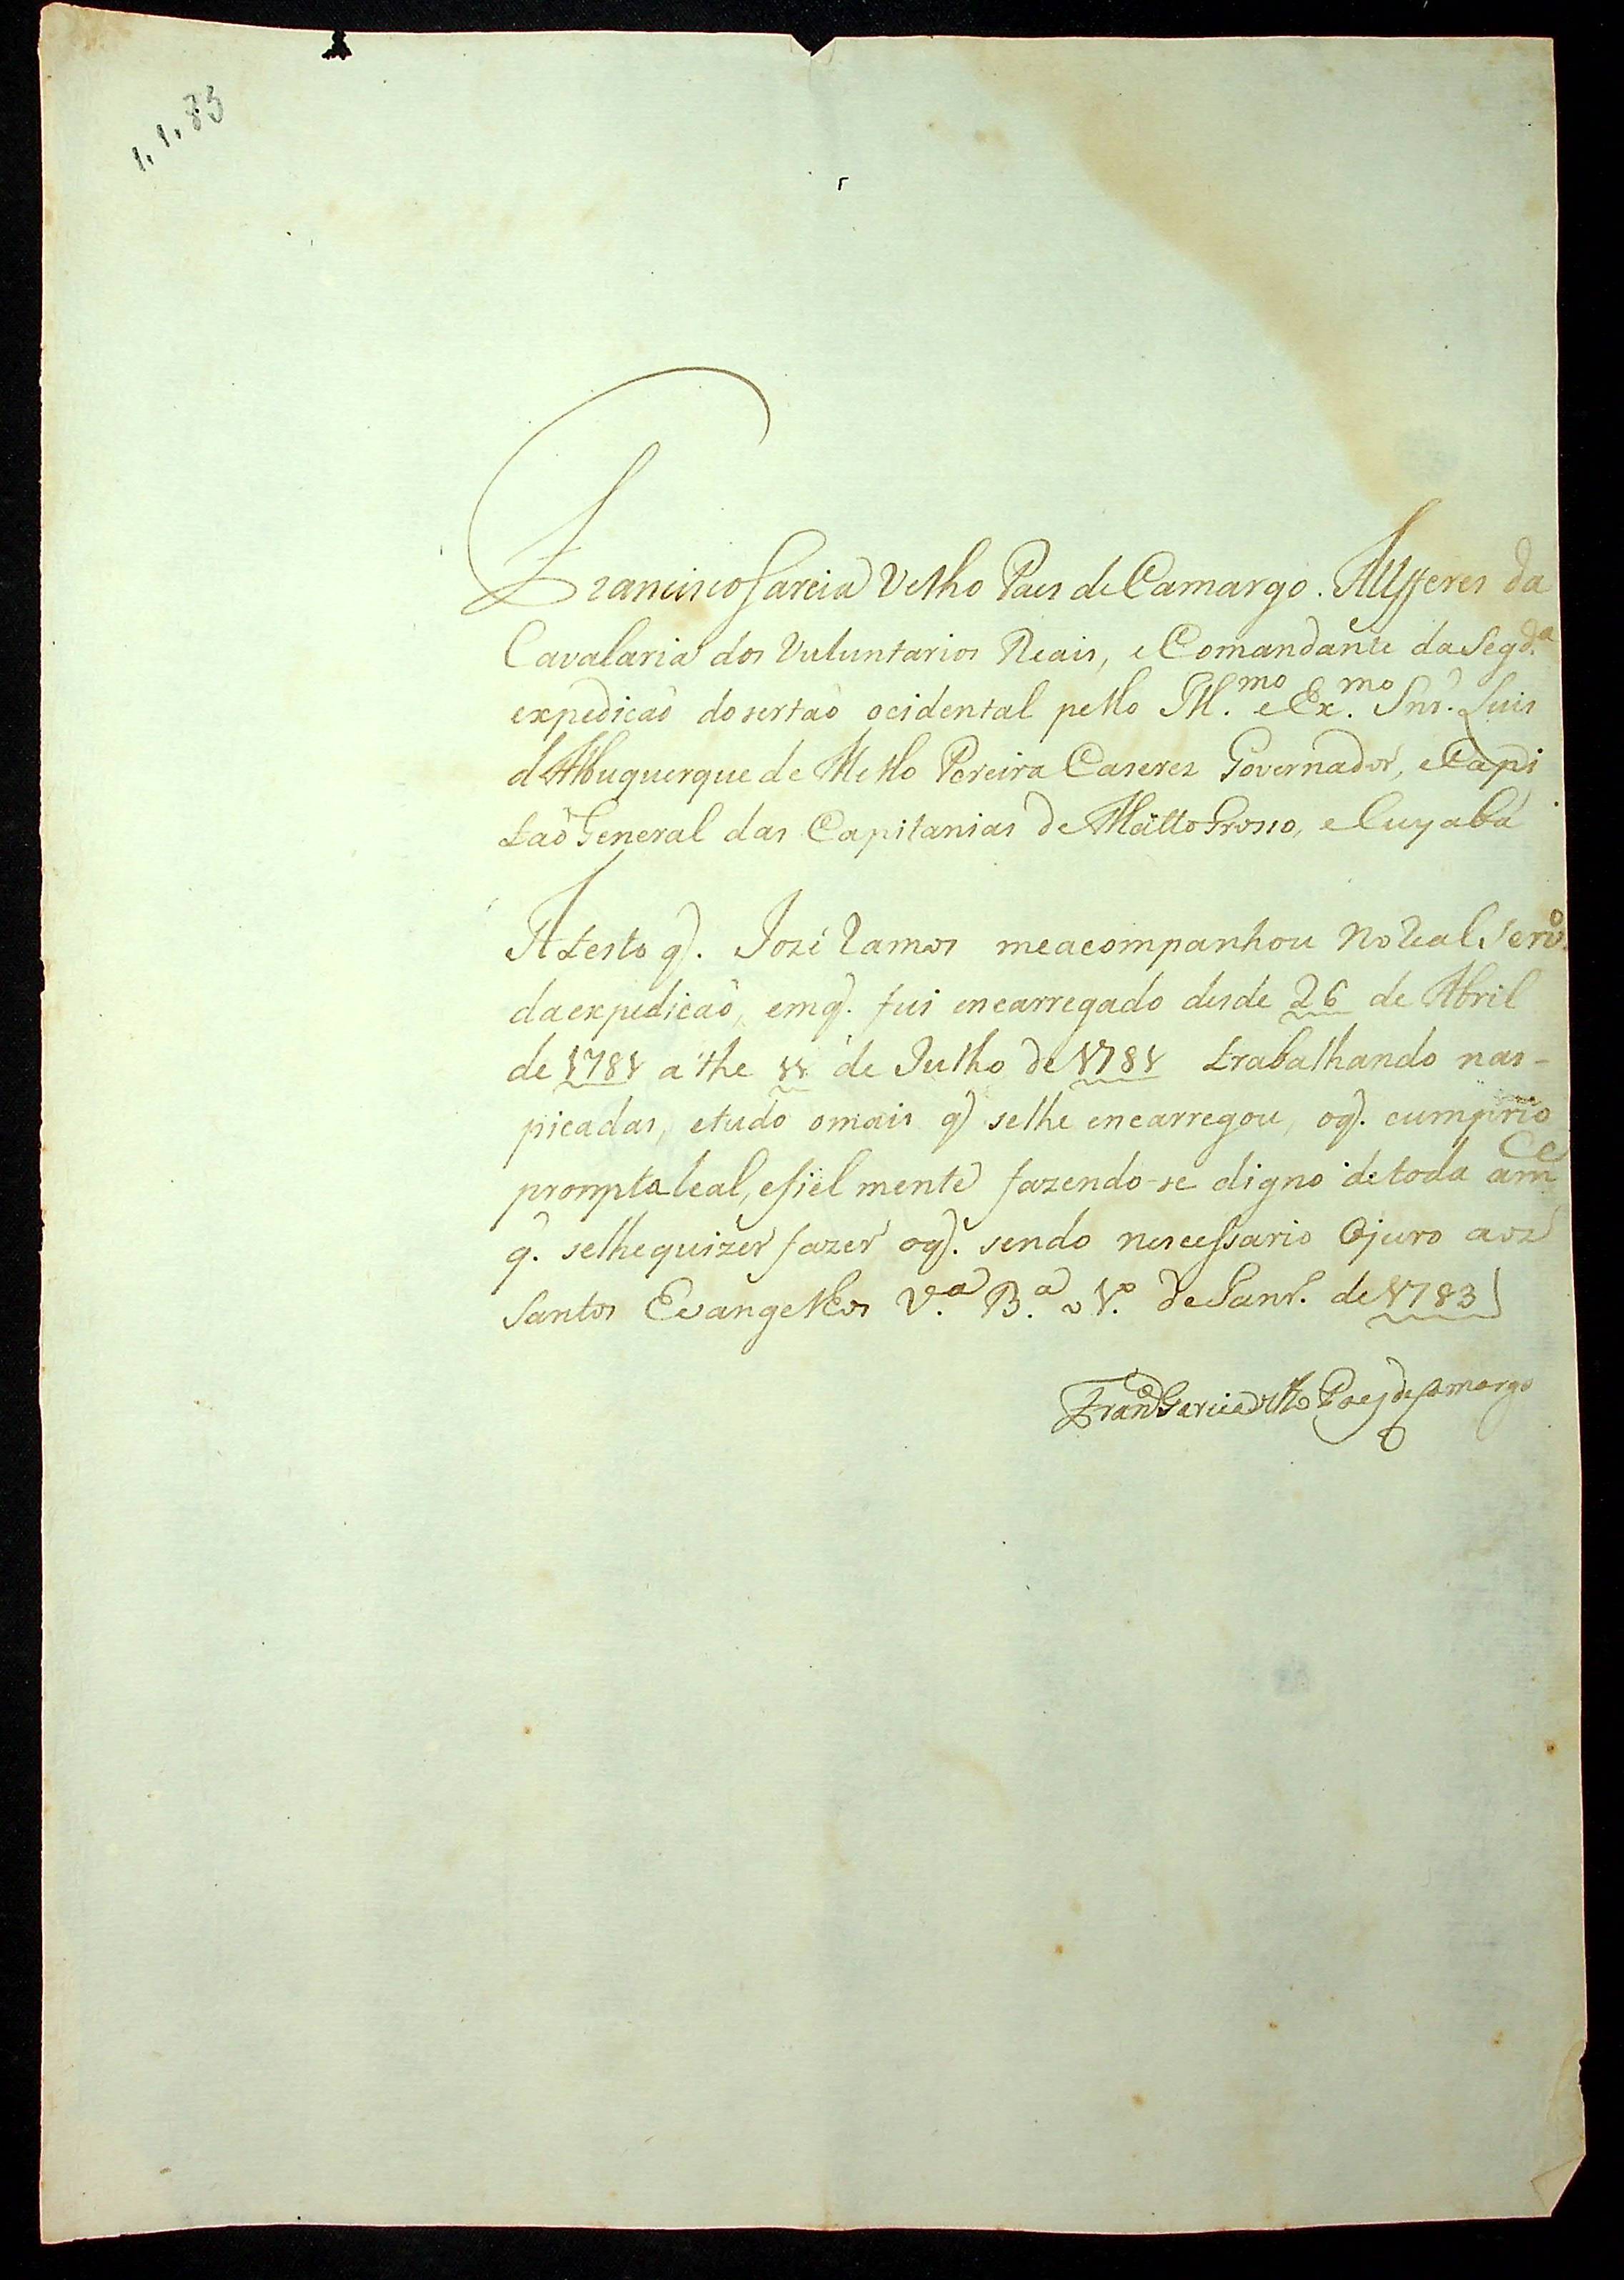 1.1.83
Francisco Garcia Velho Paes de Camargo. Allfferes da
Cavalaria dos Vuluntarios Reais, e Comandante da Segd.ª
expedicaõ do sertaõ ocidental pello Ill.mo e Ex.mo Snr. Luis
d'Albuquerque de Mello Pereira Caseres Governador, e Capi
taõ General das Capitanias de Matto Grosso, e Cuyabá
Atesto q. Jozé Ramos me acompanhou no Real Serv.º
da expedicaõ, em q. fui encarregado desde 26 de Abril
de 1781 athe 11 de Julho de 1781 trabalhando nas-
picadas, e tudo o mais q se lhe encarregou, o q. cumprio
prompta leal, e fiel mente fazendo-se digno de toda a m.ce
q. se lhe quizer fazer o q. sendo nescessario o juro aos
Santos Evangellios V.ª B.ª 1.º de Janr. de 1783
Fran.co Garcia Velho Paes de Camargo